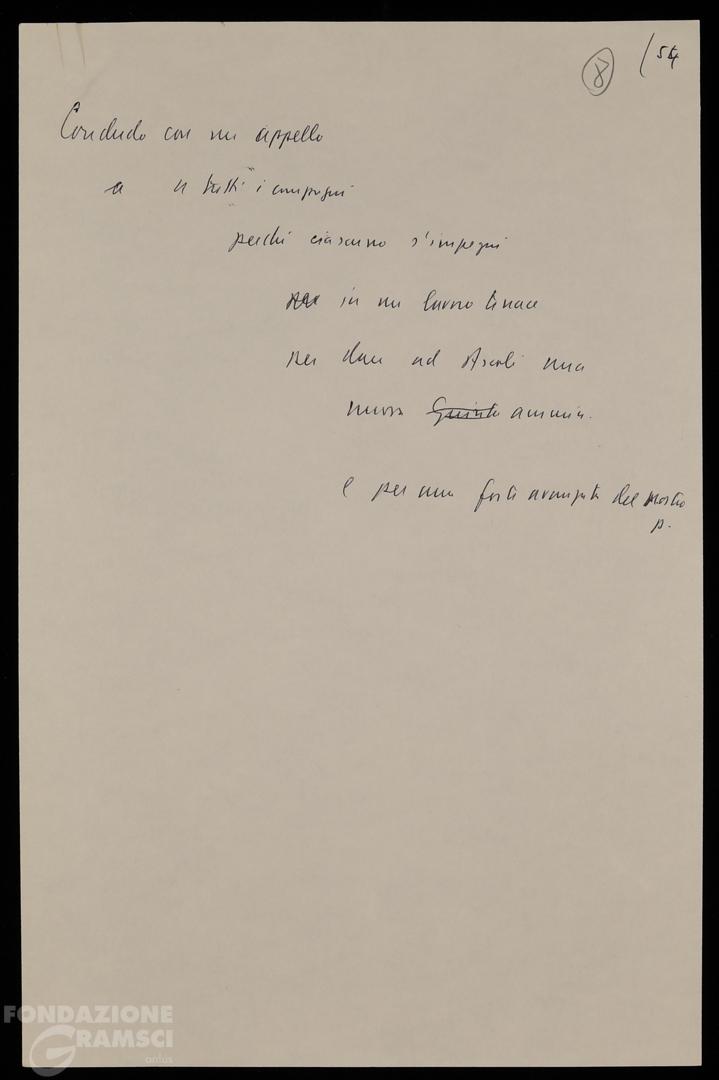 8 / 54
Concludo con un appello
a a tutti i compagni
perché ciascuno s'impegni
in un lavoro tenace
per dare ad Ascoli una
nuova Giunta ammin.
e per una forte avanzata del nostro
p.
FONDAZIONE
GRAMSCI
onlus